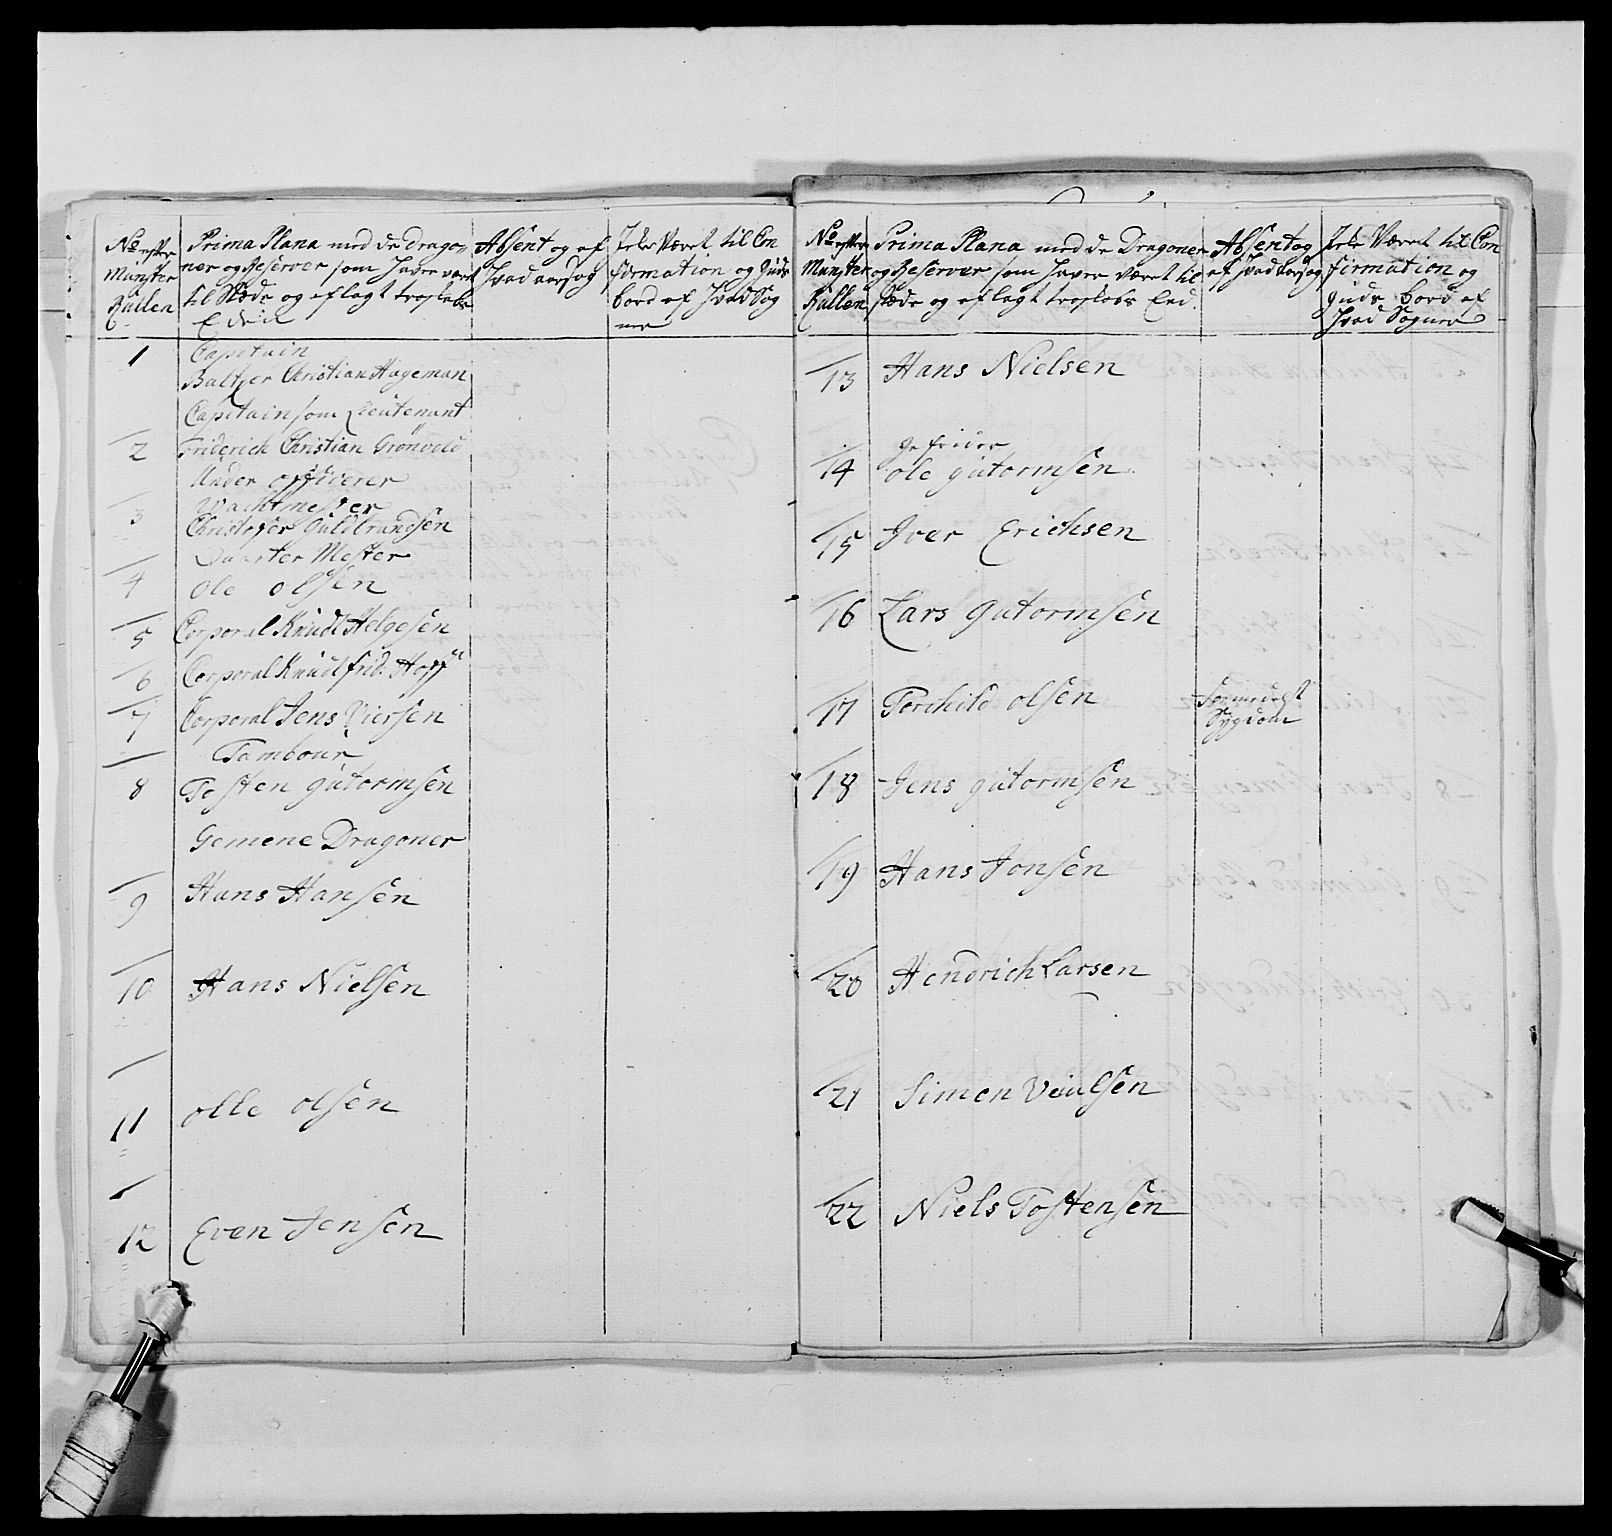 No efter
Munster
Rullen
Prima Plana med de Drago-
ner og Reserver som haver været
til Stæde og aflagt troskabs
Eden
Absent og af
hvad aarsag
Icke Været til Con
firmation og Guds
bord af hvad Sog
ner
1
Capitain
Baltzer Christian Hageman
Capitain som Lieutenant
2 Friderich Christian Grönvold
Under officerer
Wachtmester
3 Christofer Guldbrandsen
Quarter Mester
4 Ole olsen
5 Corporal Knudt Helgesen
6 Corporal Knudt frid. Hoff
7 Corporal Jens Viersen
Tambour
8 Tosten gutormsen
Gemene Dragoner
9 Hans Hansen
10 Hans Nielsen
11 olle olsen
12 Even Jensen
No efter
Munster
Rullen
Prima Plana med de Dragoner
og Reserver som haver været til
stæde og aflagt troskabs Eed.
Absent og
af hvad Aarsag
Icke Været til Con
firmation og
Guds bord af
hvad Sogner
13 Hans Nielsen
Gefrider
14 ole gutormsen
15 Iver Erichsen
16 Lars Gutormsen
17 Terchild olsen
Formedelst
Sygdom
18 Jens gutormsen
19 Hans Jonsen
20 Hendrich Larsen
21 Simen Veiulsen
22 Niels Tostensen